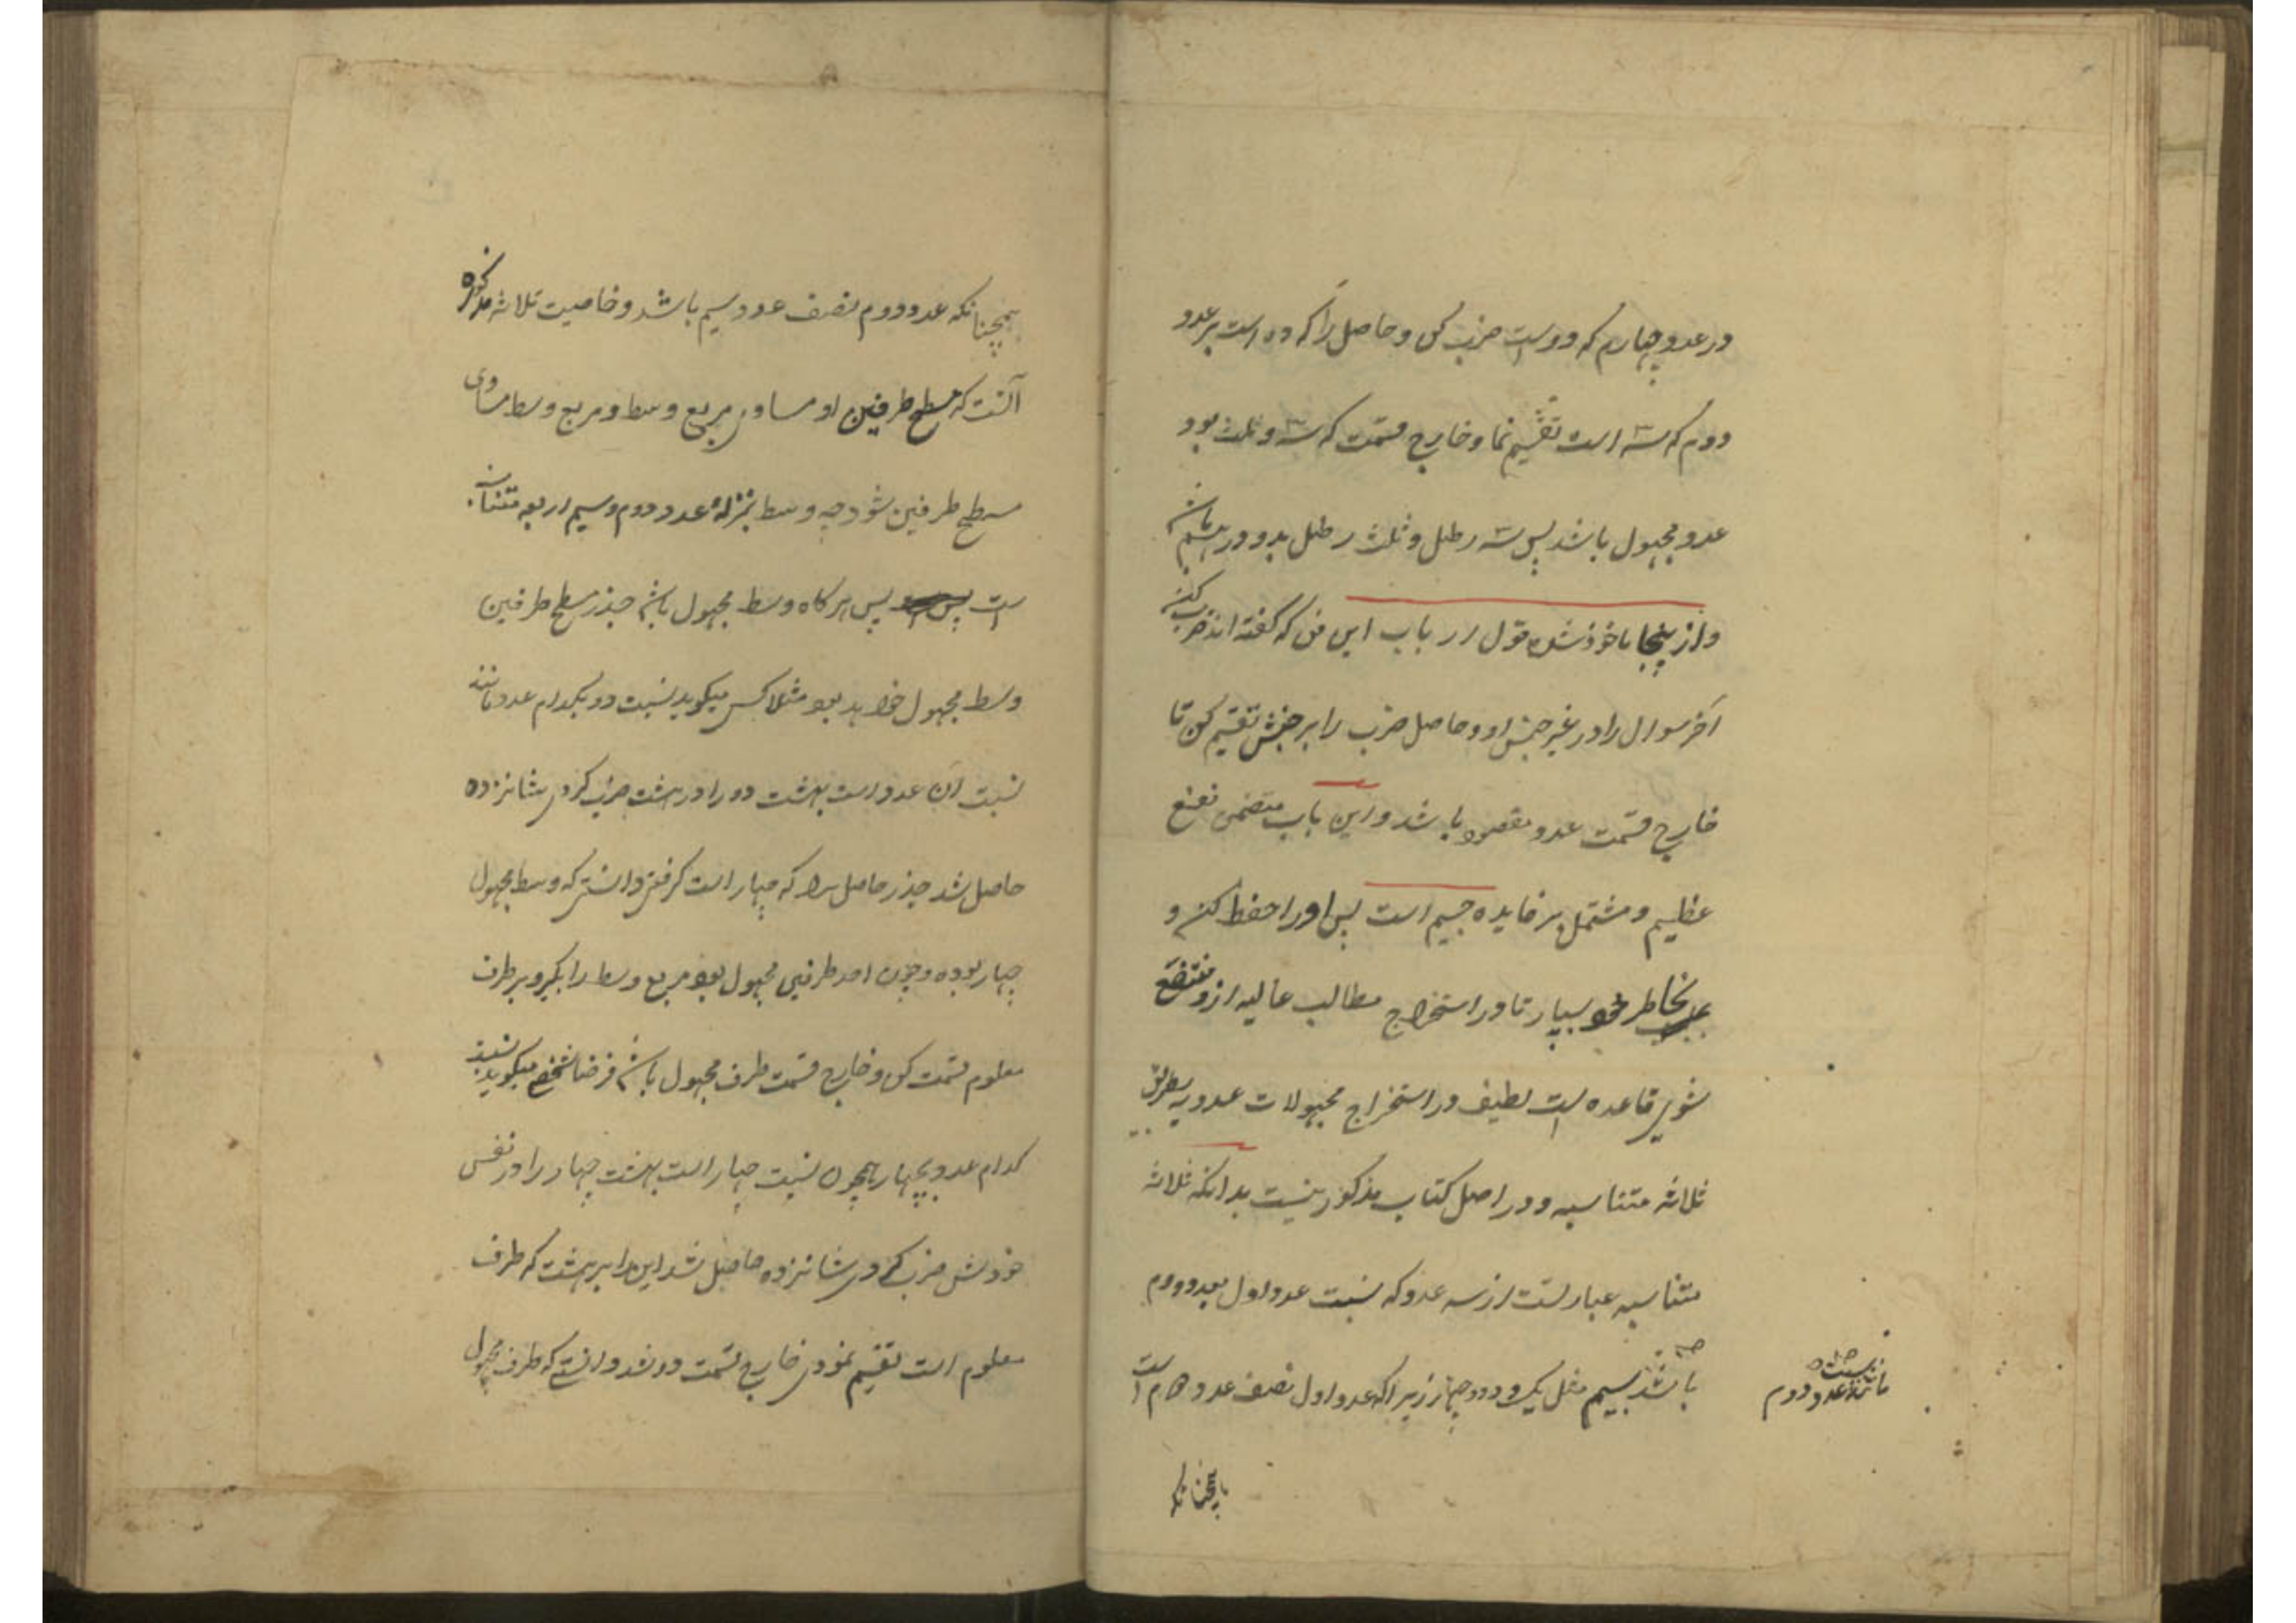 در عدد چهارم که دو است ضرب کن و حاصل را که ده است بر عدد
دوم که سه است تقسیم نما و خارج قسمت که سه و ثلث بود
عدد مجهول باشد پس سه رطل و ثلث رطل بدو درهم باشد
و از ینجا ماخوذ شد قول ارباب این فن که گفته اند ضرب کن
آخر سوال را در غیر جنس او و حاصل ضرب را بر جنسش تقسیم کن تا
خارج قسمت عدد مقصود باشد و این باب متضمن نفع
عظیم و مشتمل بر فایده جسیم است پس او را حفظ کن و
بخاطر خود بسپار تا در استخراج مطالب عالیه ازو منتفع
شوی قاعده است لطیف در استخراج مجهولات عددیه بطریق
ثلاثه متناسبه و در اصل کتاب مذکور نیست بدانکه ثلاثه
متناسبه عبارتست از سه عدد که نسبت عدد اول بعدد دوم
باشد بسیم مثل یک و دو و چهار زیرا که عدد اول نصف عدد دوم است
مانند نسبت عدد دوم
همچنانکه
همچنانکه عدد دوم نصف عدد سیم باشد و خاصیت ثلاثه مذکوره
آنست که مسطح طرفین او مساوی مربع وسط و مربع وسط مساوی
مسطح طرفین شود چه وسط بمنزلهٔ عدد دوم و سیم اربعه متناسبه
است پس هرگاه وسط مجهول باشد جذر مسطح طرفین
وسط مجهول خواهد بود مثلا کسی میگوید نسبت دو بکدام عدد مانند
نسبت آن عدد است بهشت دو را در هشت ضرب کردی شانزده
حاصل شد جذر حاصل را که چهار است گرفتی دانستی که وسط مجهول
چهار بوده و چون احد طرفین مجهول بود مربع وسط را بگیر و بر طرف
معلوم قسمت کن و خارج قسمت طرف مجهول باشد فرضا شخصی میگوید نسبت
کدام عدد بچهار همچون نسبت چهار است بهشت چهار را در نفس
خودش ضرب کردی شانزده حاصل شد این را بر هشت که طرف
معلوم است تقسیم نمودی خارج قسمت دو شد دانستی که طرف مجهول